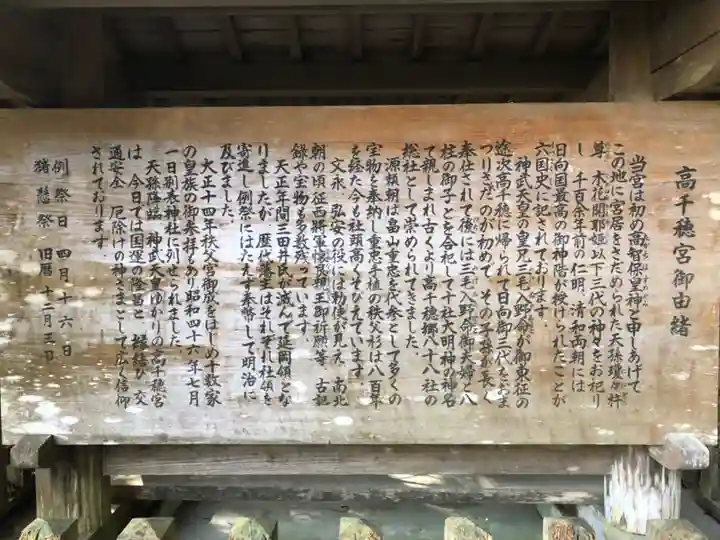 高千穂宮御由緒
当宮は初め高智保皇神と申しあげて
この地に宮居をさだめられた天孫瓊々杵
尊 木花開耶姫以下三代の神々をお祀り
し 千百余年前の仁明、清和両朝には
日向国最高の御神階が授けられたことが
六国史に記されております
神武天皇の皇兄三毛入野命が御東征の
途次高千穂に帰られて日向御三代を
つりさだのが初めて その子孫が長く
奉仕されて後には三毛入野命御夫婦と八
柱の御子とを合祀して十社大明神の神名
で親しまれ古くより高千穂郷八十八社の
総社として崇められてきました。
源頼朝は畠山重忠を代参として多くの
宝物を奉納し重忠手植の秩父杉は八百年
を経た今も社頭高くそびえています
文永、弘安の役には勅使が見え、南北
朝の頃征西将軍懐良親王御祈願等、古記
録や宝物も多数残っています。
天正年間三田井氏が滅んで延岡領とな
りましたが、歴代藩主はそれぞれ社領を
寄進し例祭にはたえず奉幣して明治に
及びました。
大正十四年秩父宮御成をはじめ十数家
の皇族の御参拝もあり昭和四十六年七月
一日別表神社に列せられました。
天孫降臨、神武天皇ゆかりの高千穂宮
は 今日では国運の隆昌と 縁結び 交
通安全 厄除けの神さまとして広く信仰
されております。
例祭日 四月十六日
猪懸祭 旧暦 十二月三日